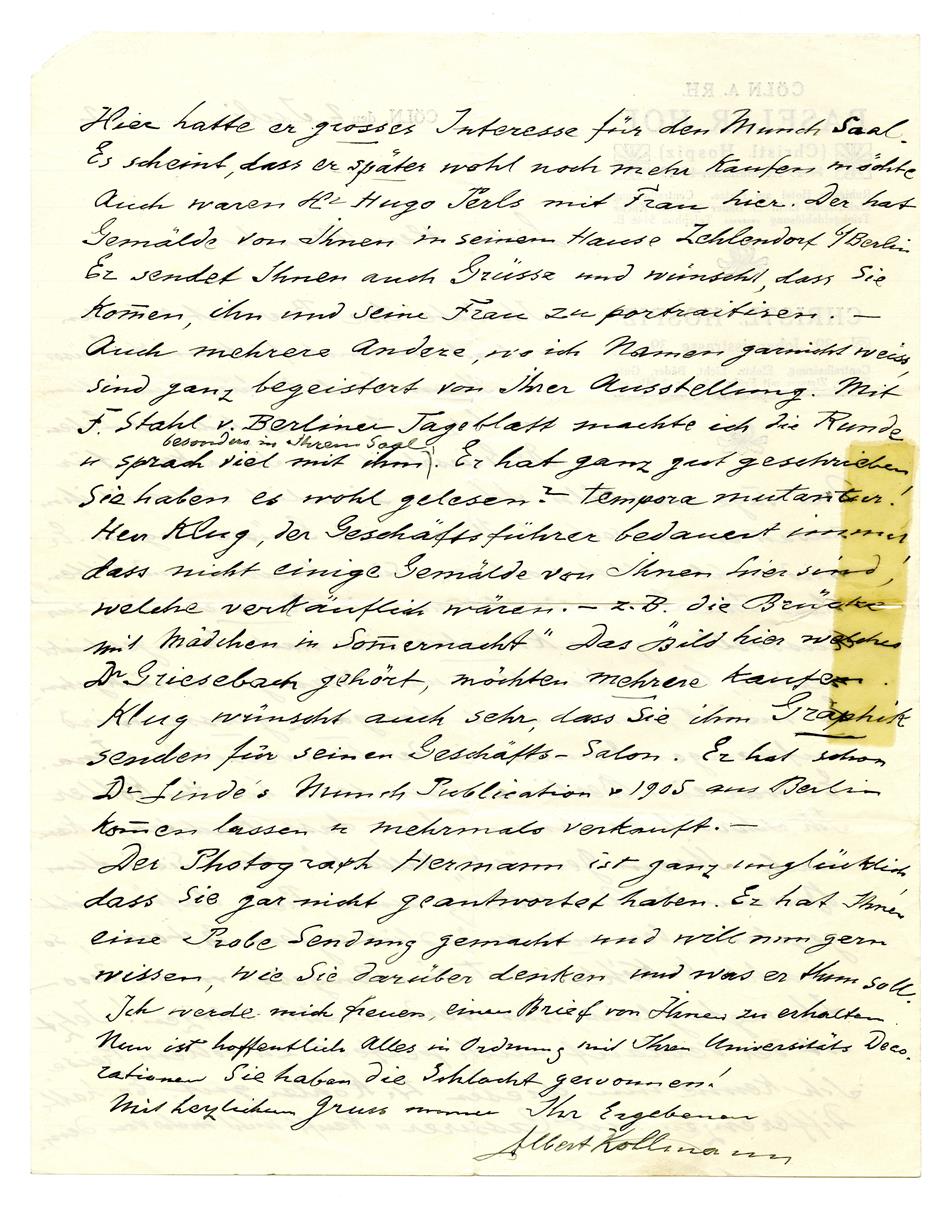 Hier hatte er grosses Interesse für den Munch Saal.
Es scheint, dass er später wohl noch mehr kaufen möchte
Auch waren Hr Hugo Perls mit Frau hier. Der hat
Gemälde von Ihnen in seinem Hause Zehlendorf b/Berlin
Er sendet Ihnen auch Grüsse und wünscht, dass Sie
kom̄en, ihn und seine Frau zu portraitiren. —
Auch mehrere Andere, wo ich Namen garnicht weiss,
sind ganz begeistert von Ihrer Ausstellung. Mit
F. Stahl v. Berliner Tageblatt machte ich die Runde
besonders in Ihrem Saal
u sprach viel mit ihm. Er hat ganz gut geschrieben
Sie haben es wohl gelesen? – tempora mutantur!
Herr Klug, der Geschäftsführer bedauert immer
dass nicht einige Gemälde von Ihnen hier sind,
welche verkäuflich wären. – z.B. die Brücke
mit Mädchen in Som̄ernacht" Das Bild hier welches
Dr Griesebach gehört, möchten mehrere kaufen.
Klug wünscht auch sehr, dass Sie ihm Graphik
senden für seinen Geschäfts-Salon. Er hat schon
Dr Linde's Munch Publication v 1905 aus Berlin
kom̄en lassen u mehrmals verkauft. —
Der Photograph Hermann ist ganz unglücklich
dass Sie gar nicht geantwortet haben. Er hat Ihnen
eine Probe Sendung gemacht und will nun gern
wissen, wie Sie darüber denken und was er thun soll.
Ich werde mich freuen, einen Brief von Ihnen zu erhalten
Nun ist hoffentlich Alles in Ordnung mit Ihren Universitäts Deco-
rationen Sie haben die Schlacht gewonnen!
Mit herzlichem Gruss immer Ihr Ergebener
Albert Kollmann
CÖLN A. RH.
BASELER HOF
(Christl. Hospiz)
CÖLN, den